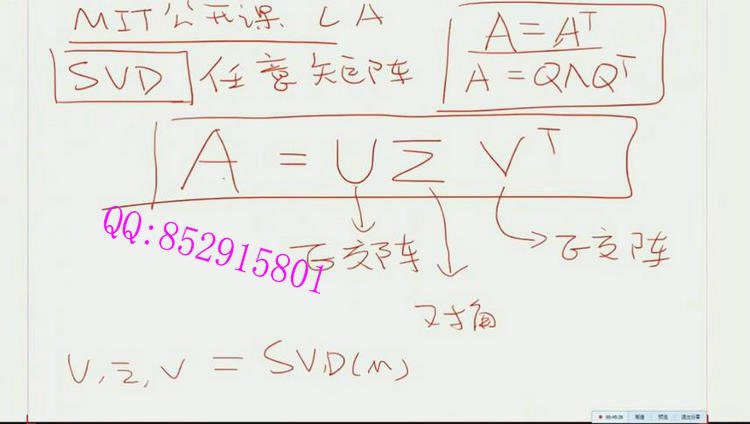 MIT公开课 LA
A=Aᵀ
SVD 任意矩阵
A=QΛQᵀ
A = UΣVᵀ
QQ:852915801
正交阵
正交阵
对角
U,Σ,V = SVD(M)